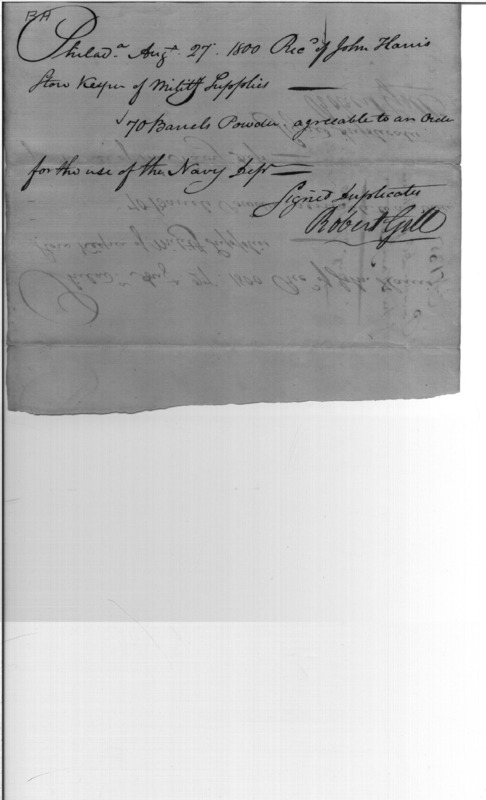 BA
Philad.a Aug.t 27. 1800 Rec.d of John Harris
Store Keeper of Milit.y Supplies
70 Barrels Powder agreeable to an Order
for the use of the Navy Dep.t
Signed Duplicates
Robert Gill